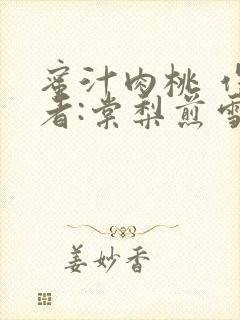 蜜汁肉桃 作
者:棠梨煎雪
姜妙香